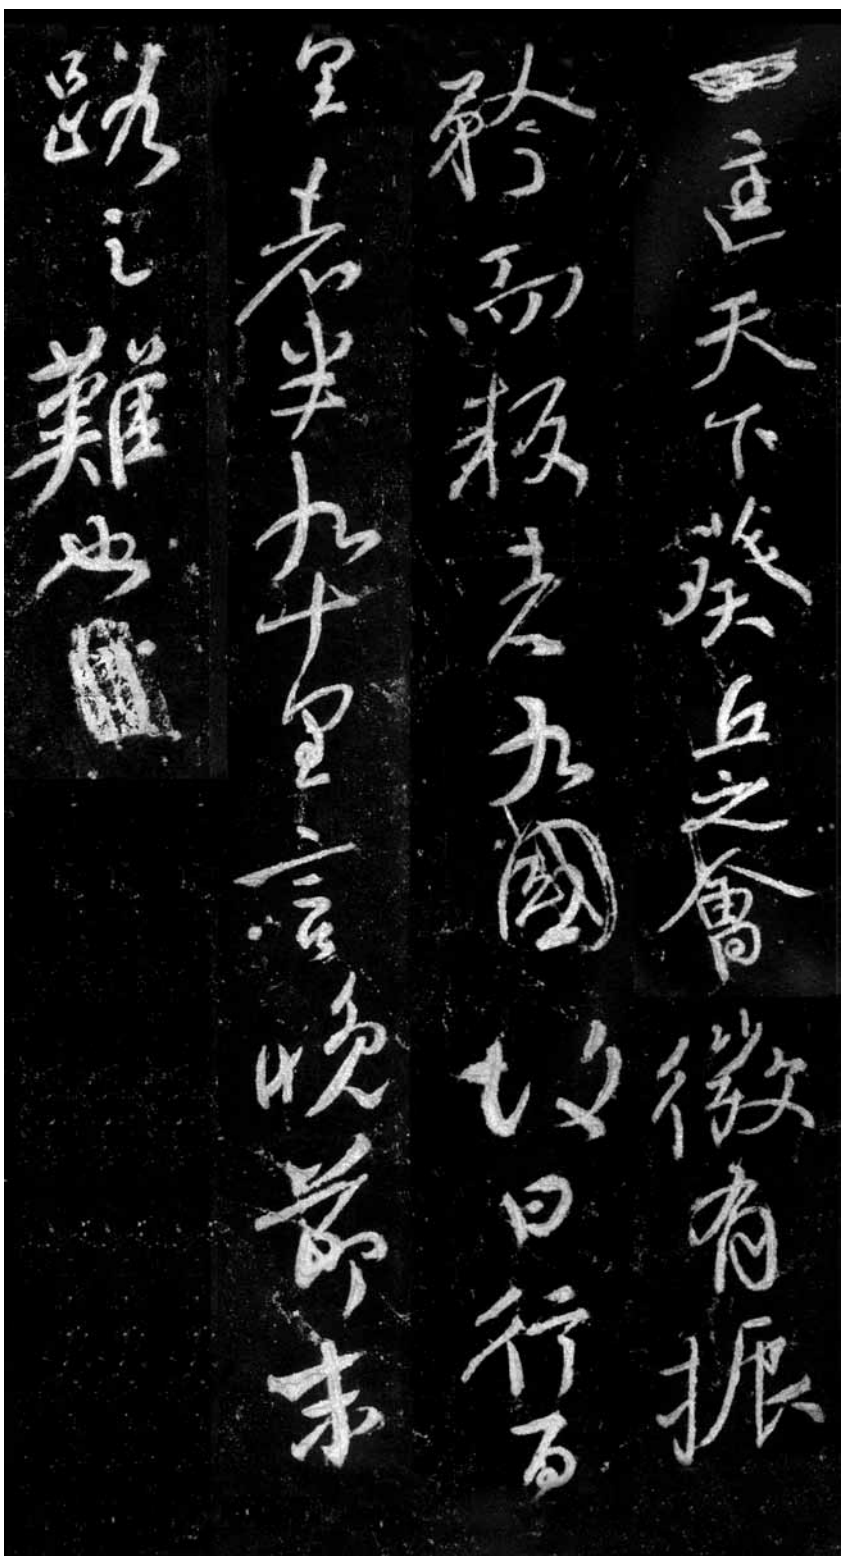 一匡天下葵丘之會微有振
矜而叛者九國故曰行百
里者半九十里言晚節末
路之難也